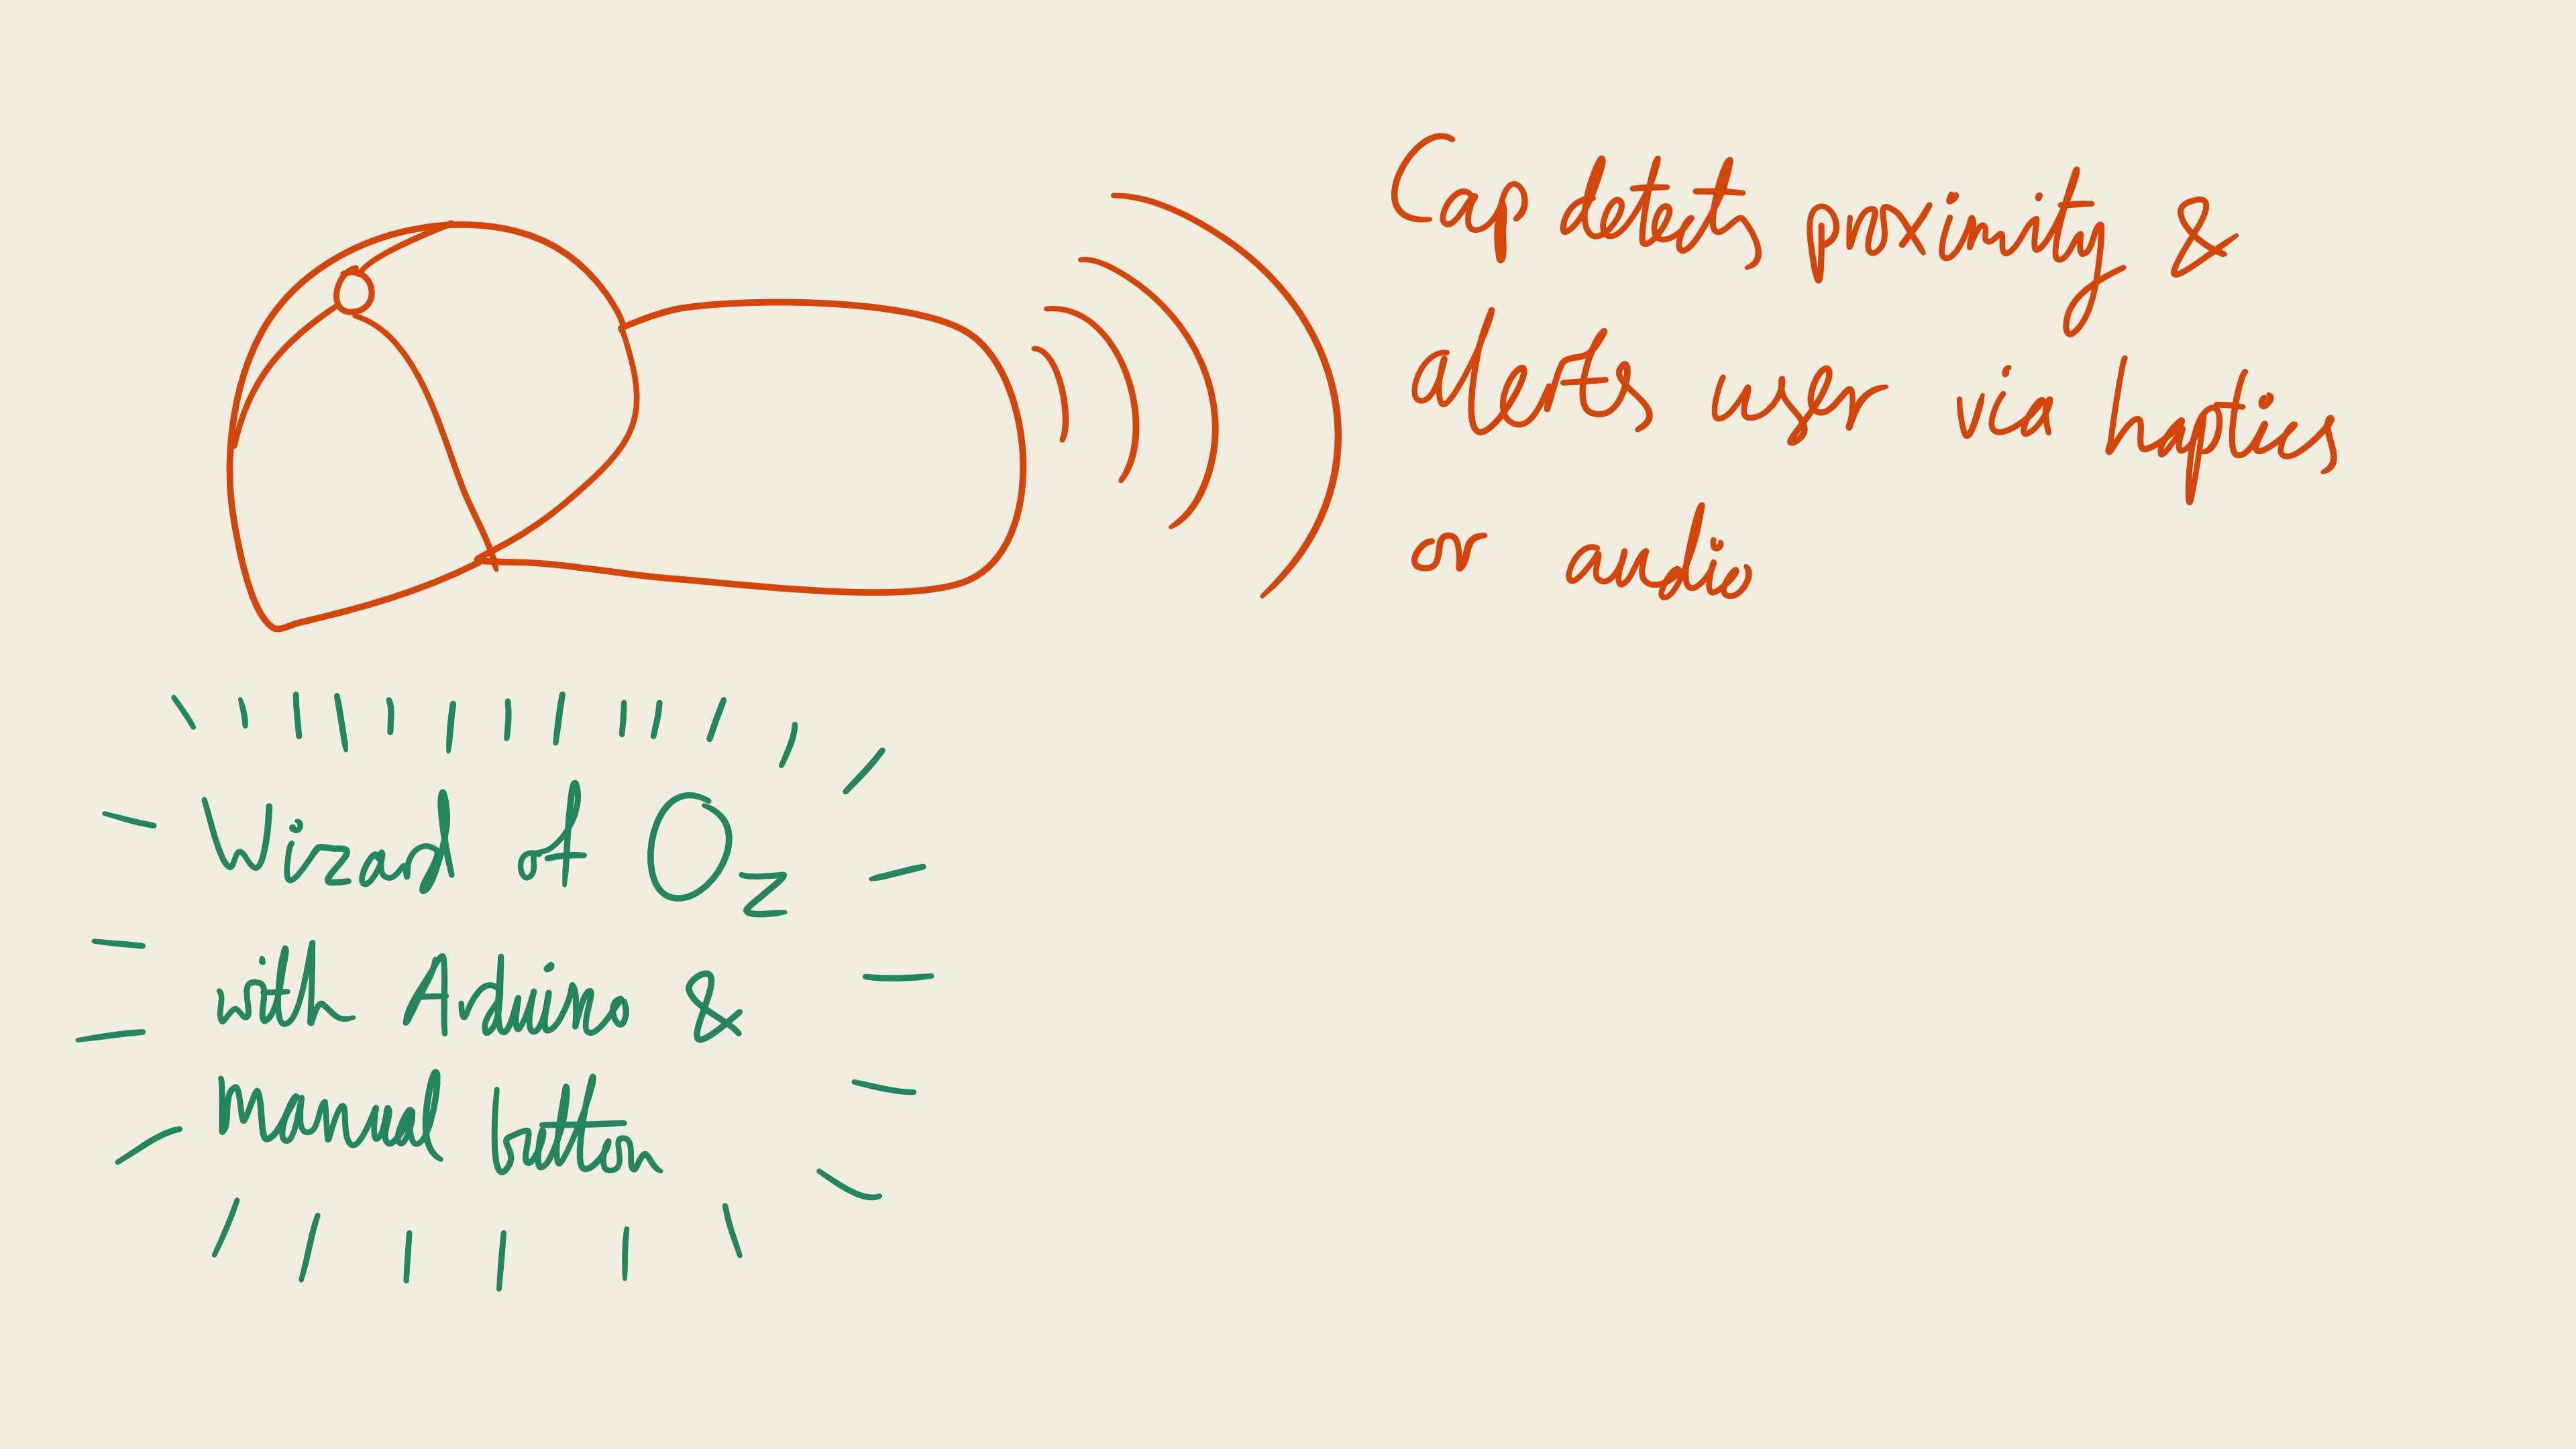 Cap detects proximity &
alerts user via haptics
or audio
Wizard of Oz
with Arduino &
manual button